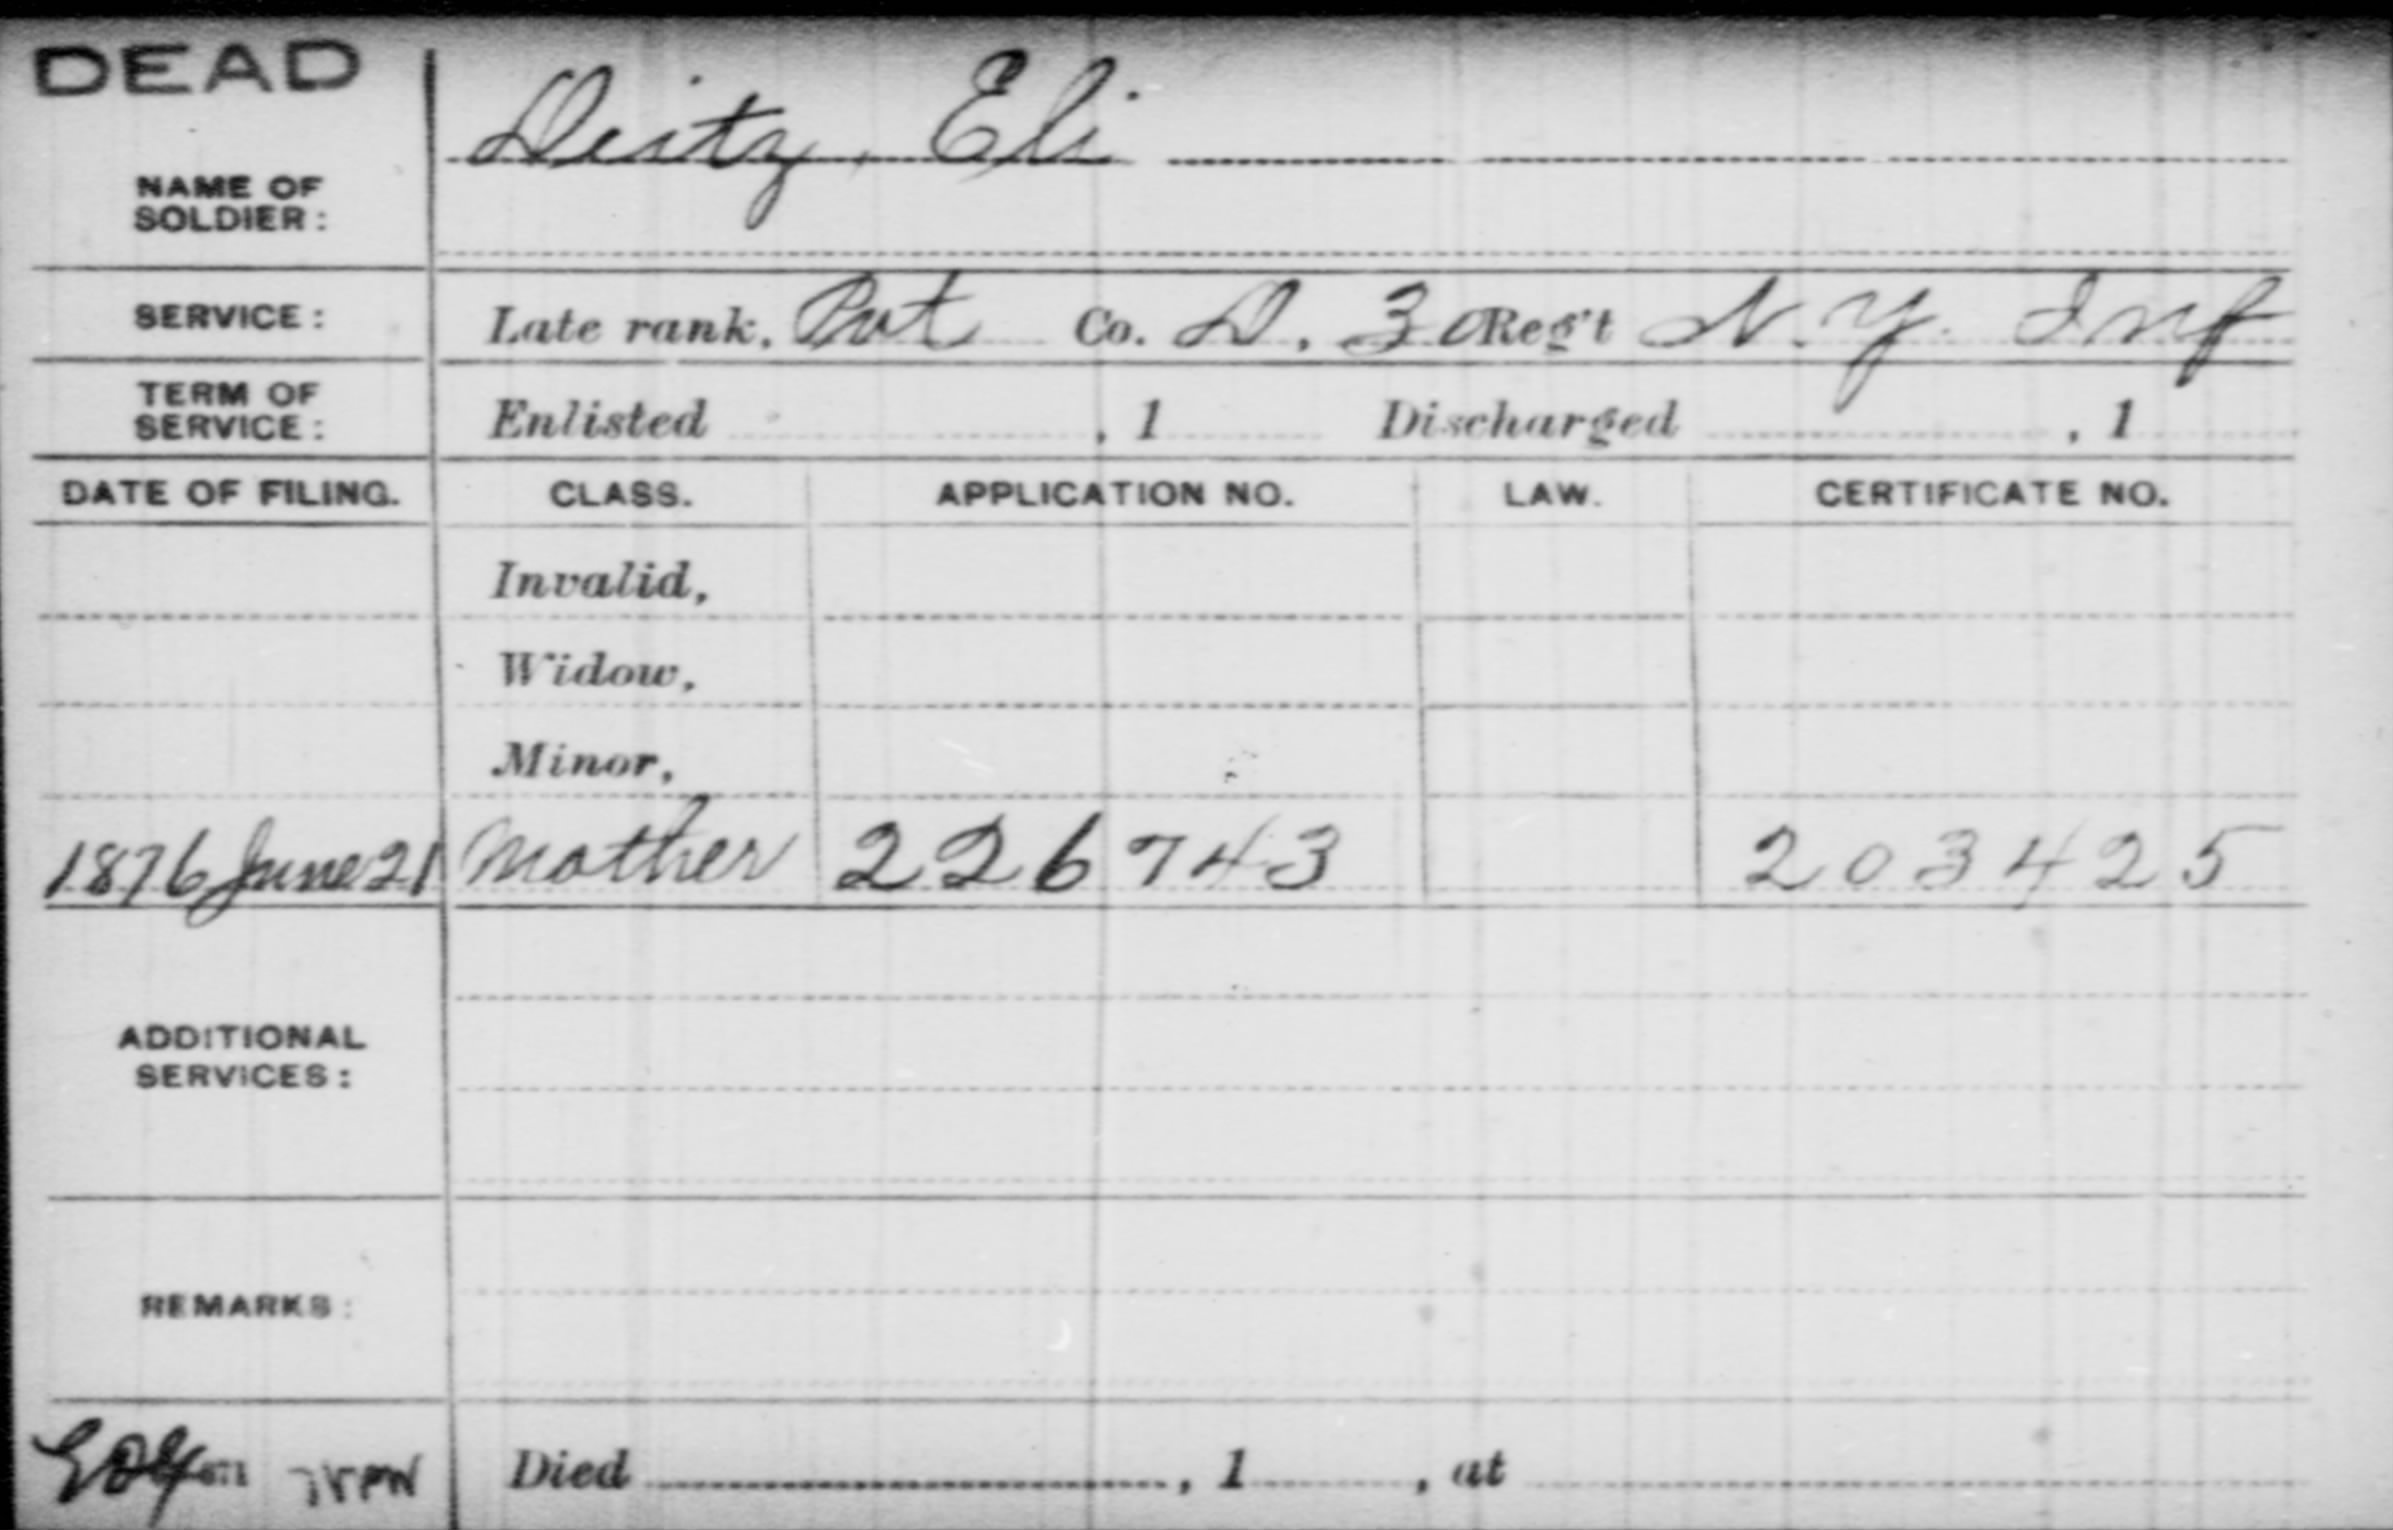 DEAD
Deitz, Eli
NAME OF
SOLDIER:
SERVICE: Late rank, Pvt Co. D, 30 Reg't N. Y. Inf
TERM OF
SERVICE: Enlisted , 1 Discharged , 1
DATE OF FILING. CLASS. APPLICATION NO. LAW. CERTIFICATE NO.
Invalid,
Widow,
Minor,
1876 June 21 Mother 226743 203425
ADDITIONAL
SERVICES:
REMARKS:
Died , 1 , at